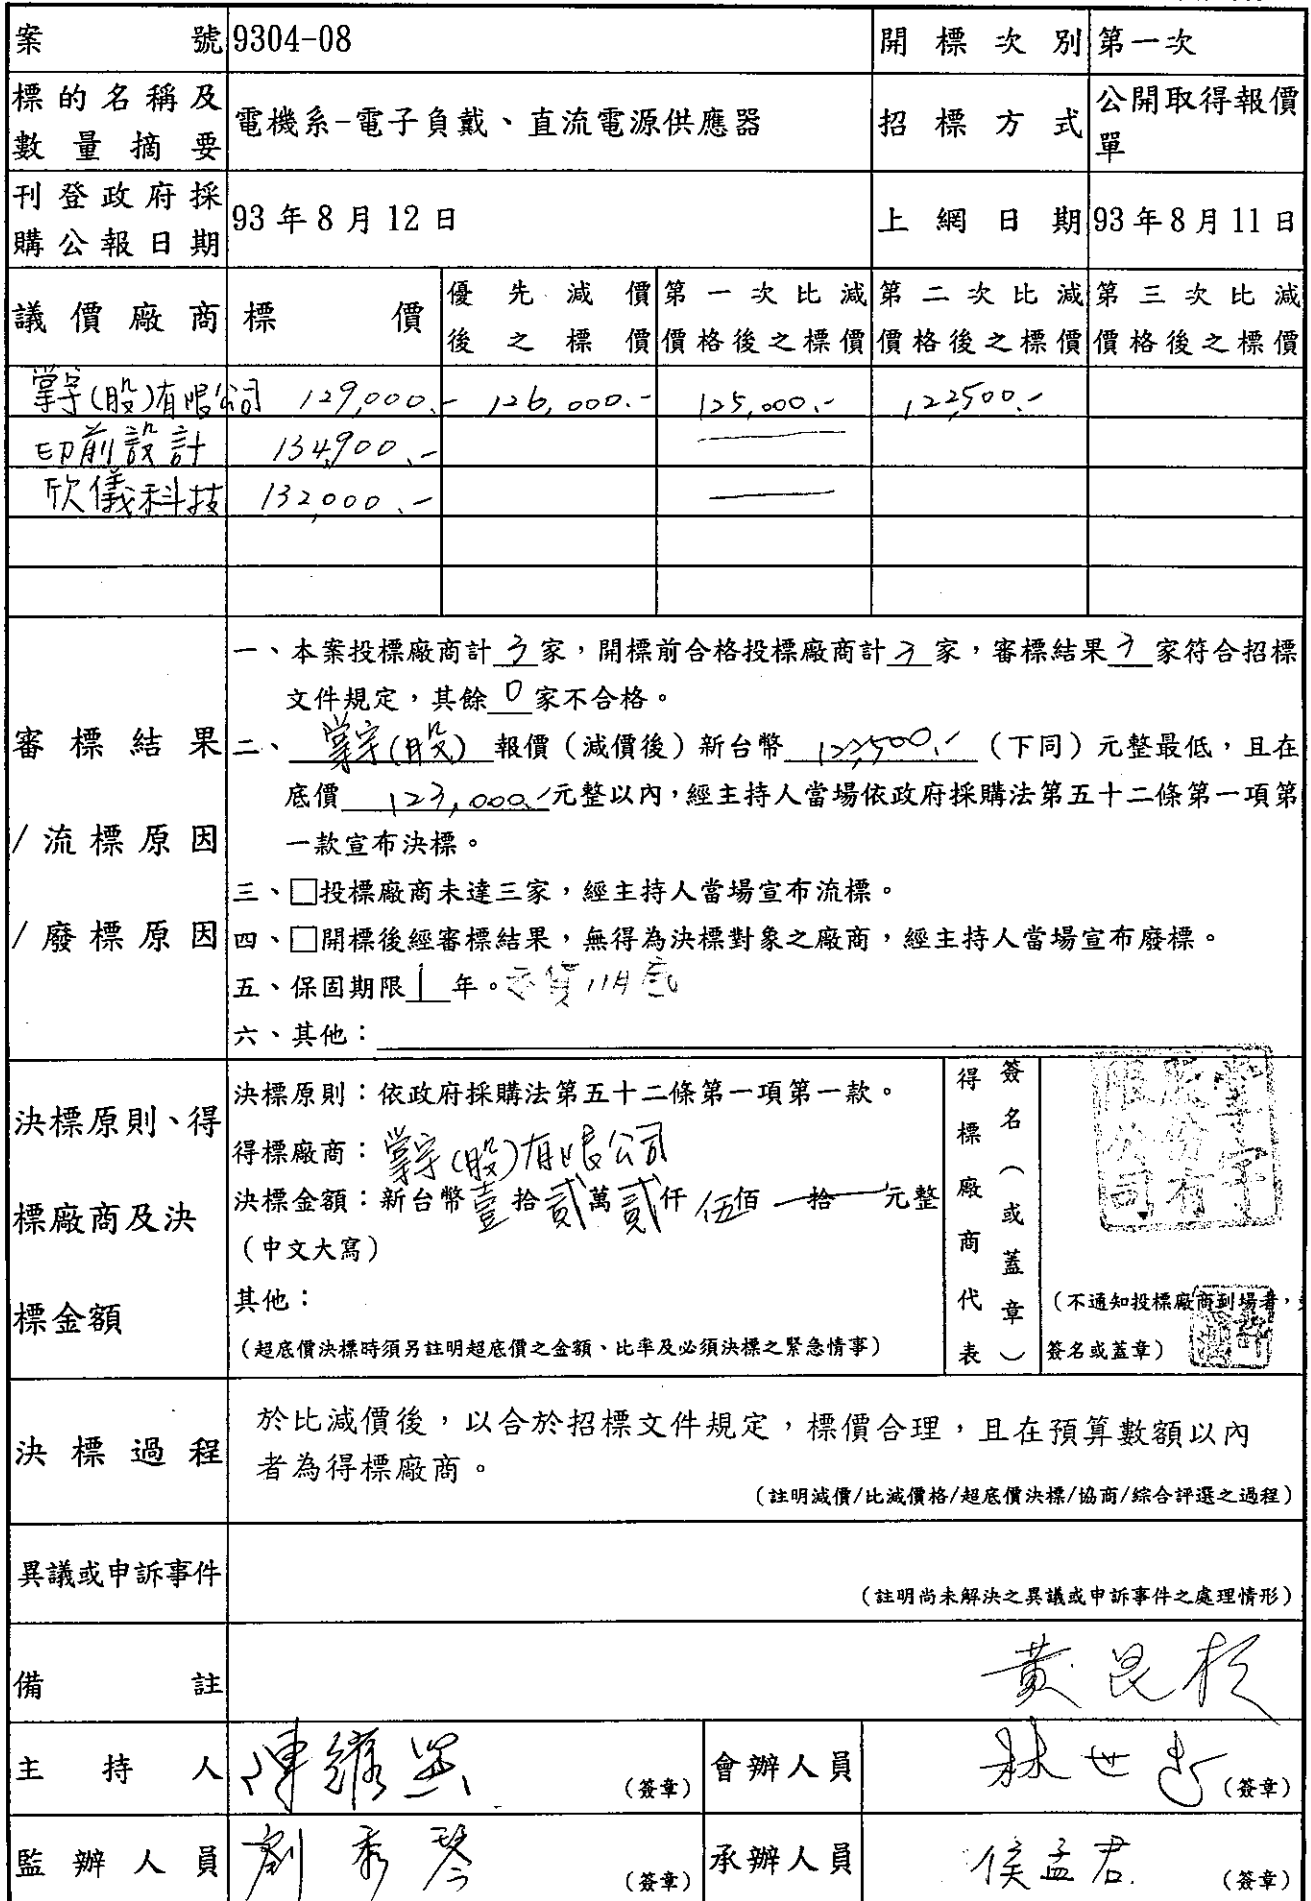 案號 9304-08 開標次別 第一次
標的名稱及數量摘要 電機系-電子負戴、直流電源供應器 招標方式 公開取得報價單
刊登政府採購公報日期 93年8月12日 上網日期 93年8月11日
議價廠商 標價 優先減價後之標價 第一次比減價格後之標價 第二次比減價格後之標價 第三次比減價格後之標價
掌宇(股)有限公司 129,000.- 126,000.- 125,000.- 122,500.-
印前設計 134,900.-
欣儀科技 132,000.-
審標結果/流標原因/廢標原因
一、本案投標廠商計3家，開標前合格投標廠商計3家，審標結果3家符合招標
文件規定，其餘0家不合格。
二、掌宇(股)報價（減價後）新台幣122,500.-（下同）元整最低，且在
底價123,000.-元整以內，經主持人當場依政府採購法第五十二條第一項第
一款宣布決標。
三、□投標廠商未達三家，經主持人當場宣布流標。
四、□開標後經審標結果，無得為決標對象之廠商，經主持人當場宣布廢標。
五、保固期限1年。交貨11月底
六、其他：
決標原則、得標廠商及決標金額
決標原則：依政府採購法第五十二條第一項第一款。
得標廠商：掌宇(股)有限公司
決標金額：新台幣壹拾貳萬貳仟伍佰拾元整
（中文大寫）
其他：
（超底價決標時須另註明超底價之金額、比率及必須決標之緊急情事）
得標廠商代表簽名（或蓋章）
掌宇股份有限公司
（不通知投標廠商到場者，
簽名或蓋章）
決標過程
於比減價後，以合於招標文件規定，標價合理，且在預算數額以內
者為得標廠商。
（註明減價/比減價格/超底價決標/協商/綜合評選之過程）
異議或申訴事件
（註明尚未解決之異議或申訴事件之處理情形）
備註
主持人 （簽章） 會辦人員 （簽章）
監辦人員 劉秀琴 （簽章） 承辦人員 侯孟君 （簽章）